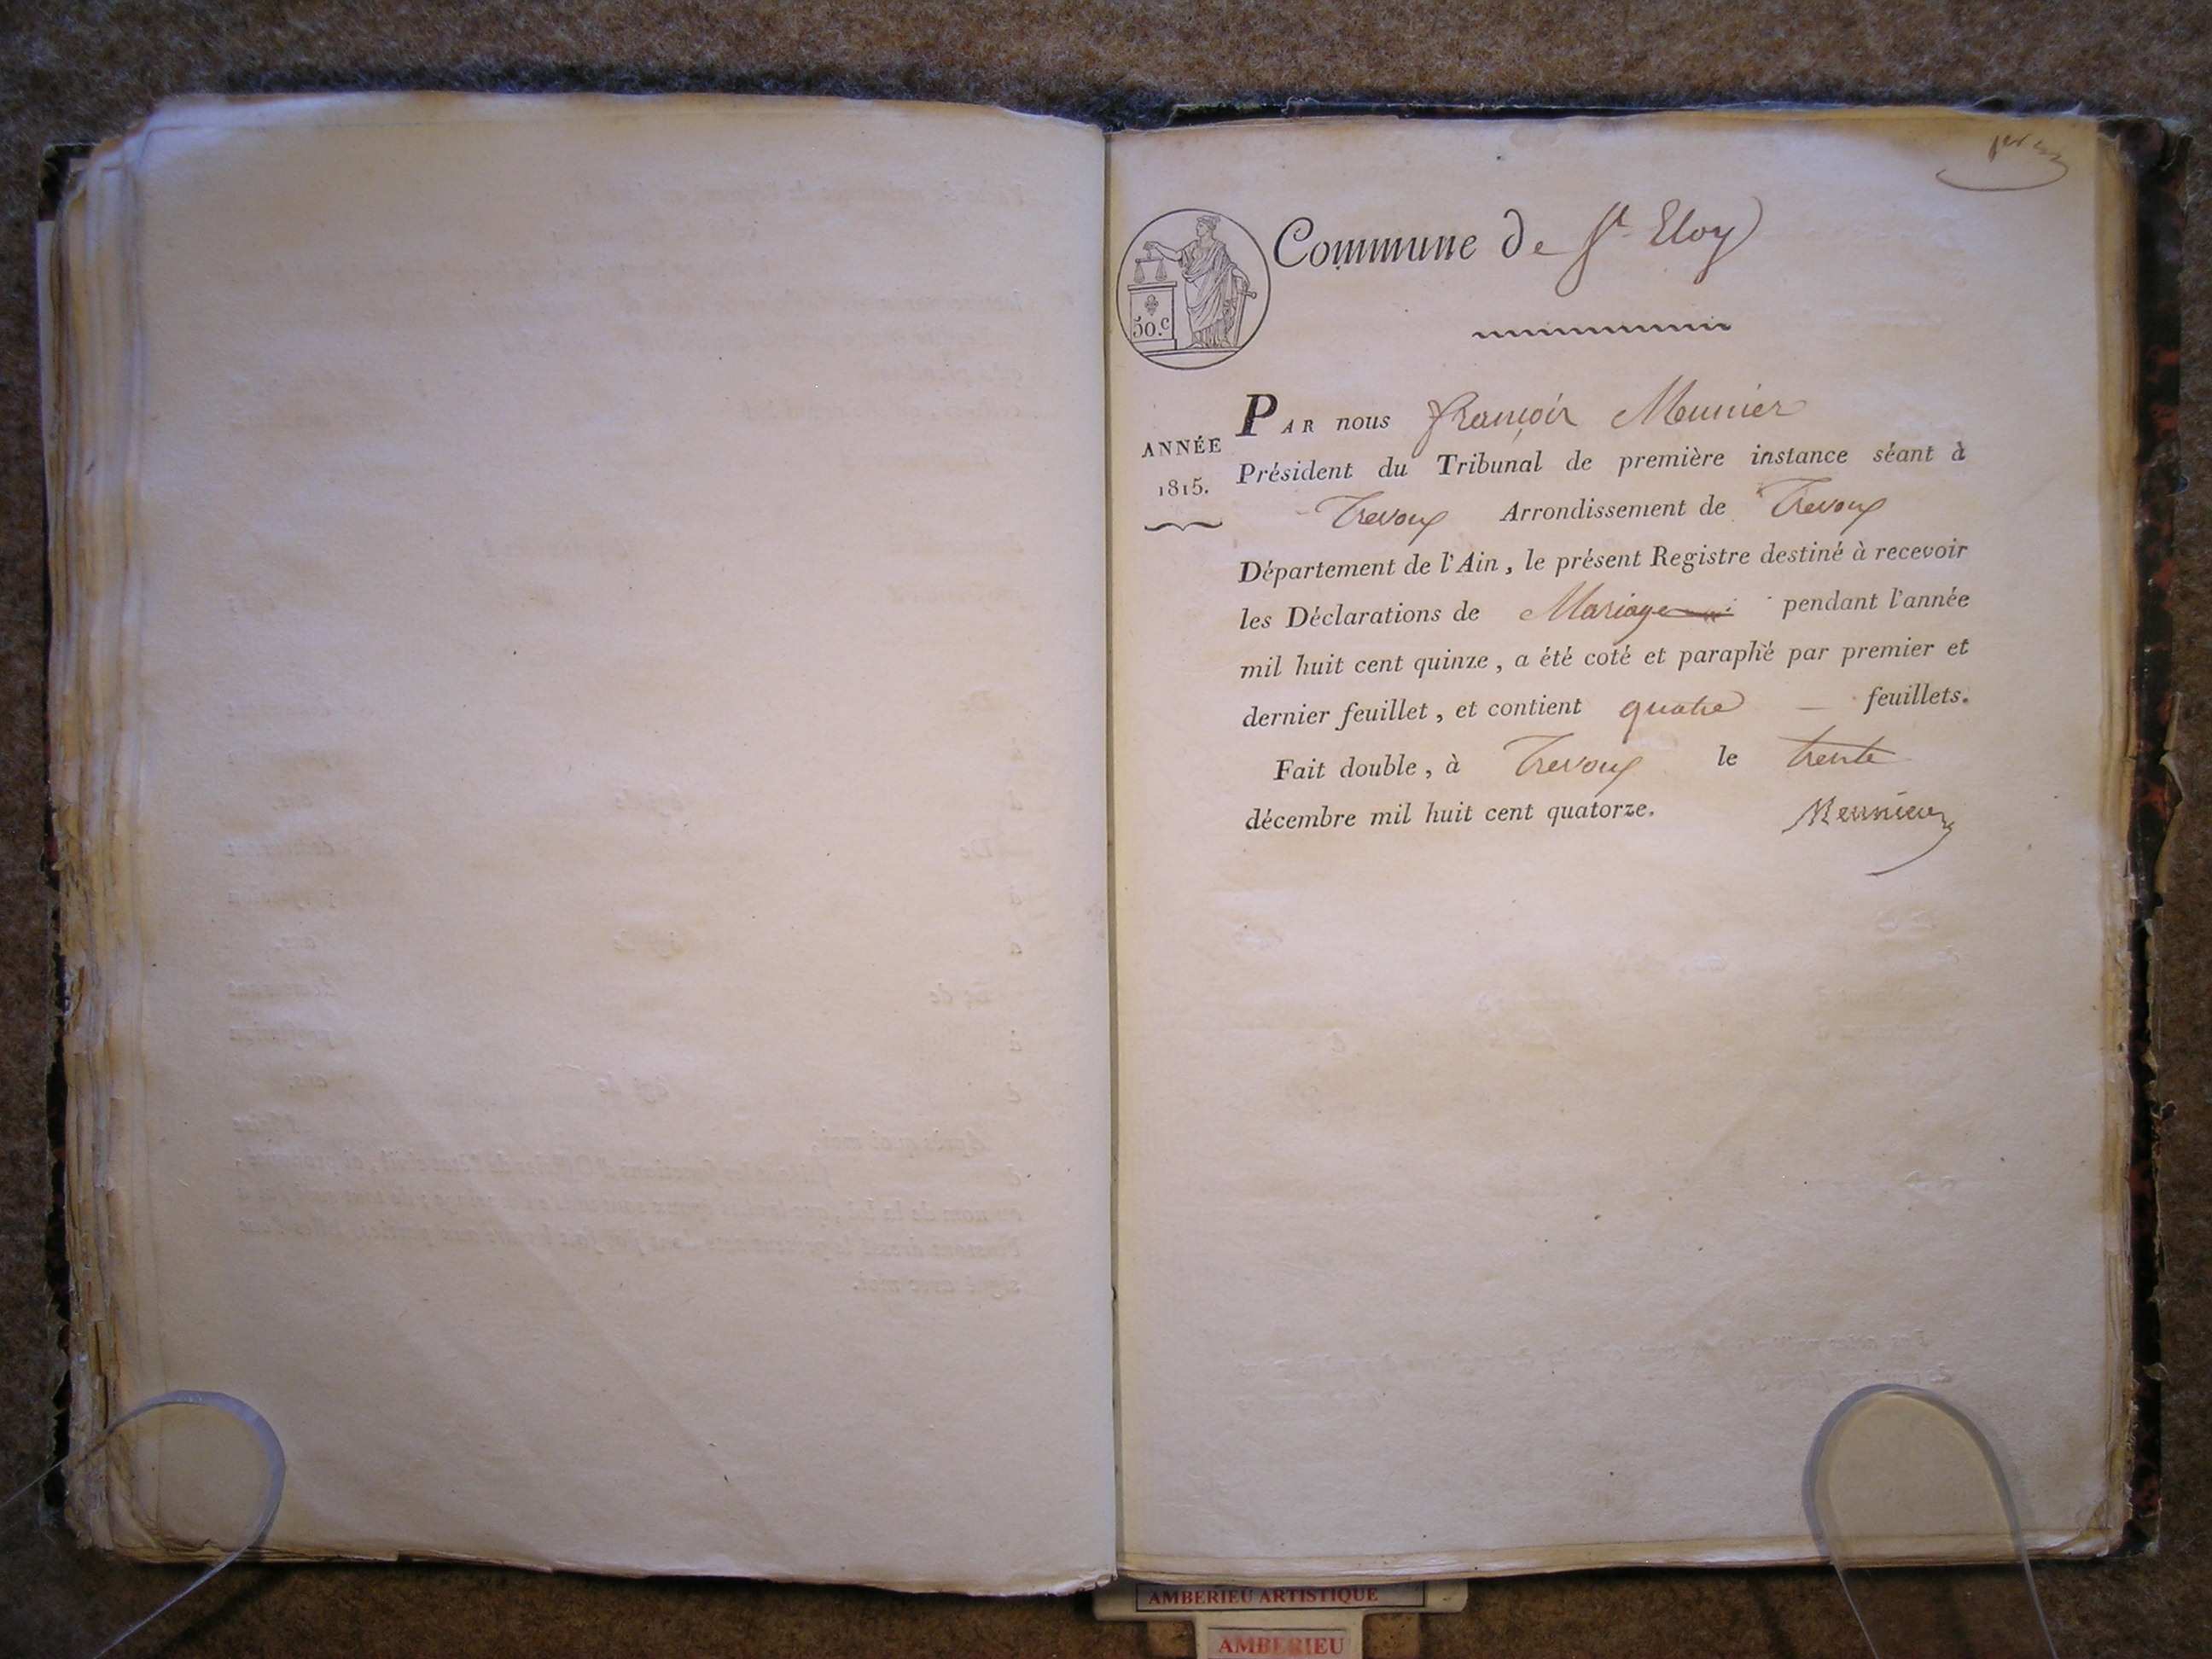 1er m
Commune de St Eloy
50.c
PAR nous françois Meunier
ANNÉE
1815.
Président du Tribunal de première instance séant à
Trevoux Arrondissement de Trevoux
Département de l'Ain, le présent Registre destiné à recevoir
les Déclarations de Mariage pendant l'année
mil huit cent quinze, a été coté et paraphé par premier et
dernier feuillet, et contient quatre — feuillets.
Fait double, à Trevoux le trente
décembre mil huit cent quatorze.
Meunier
AMBERIEU ARTISTIQUE
AMBERIEU